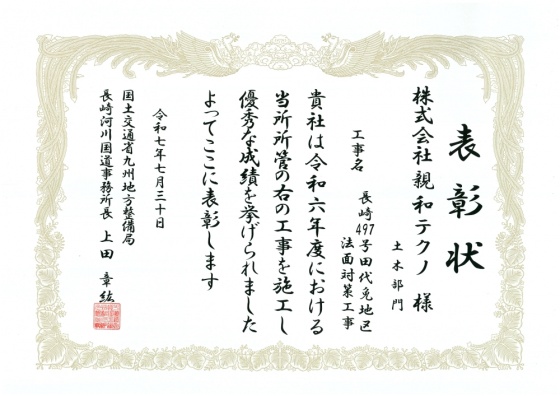 表彰状
土木部門
株式会社親和テクノ 様
工事名 長崎497号田代免地区
法面対策工事
貴社は令和六年度における
当所所管の右の工事を施工し
優秀な成績を挙げられました
よってここに表彰します
令和七年七月三十日
国土交通省九州地方整備局
長崎河川国道事務所長 上田 章紘